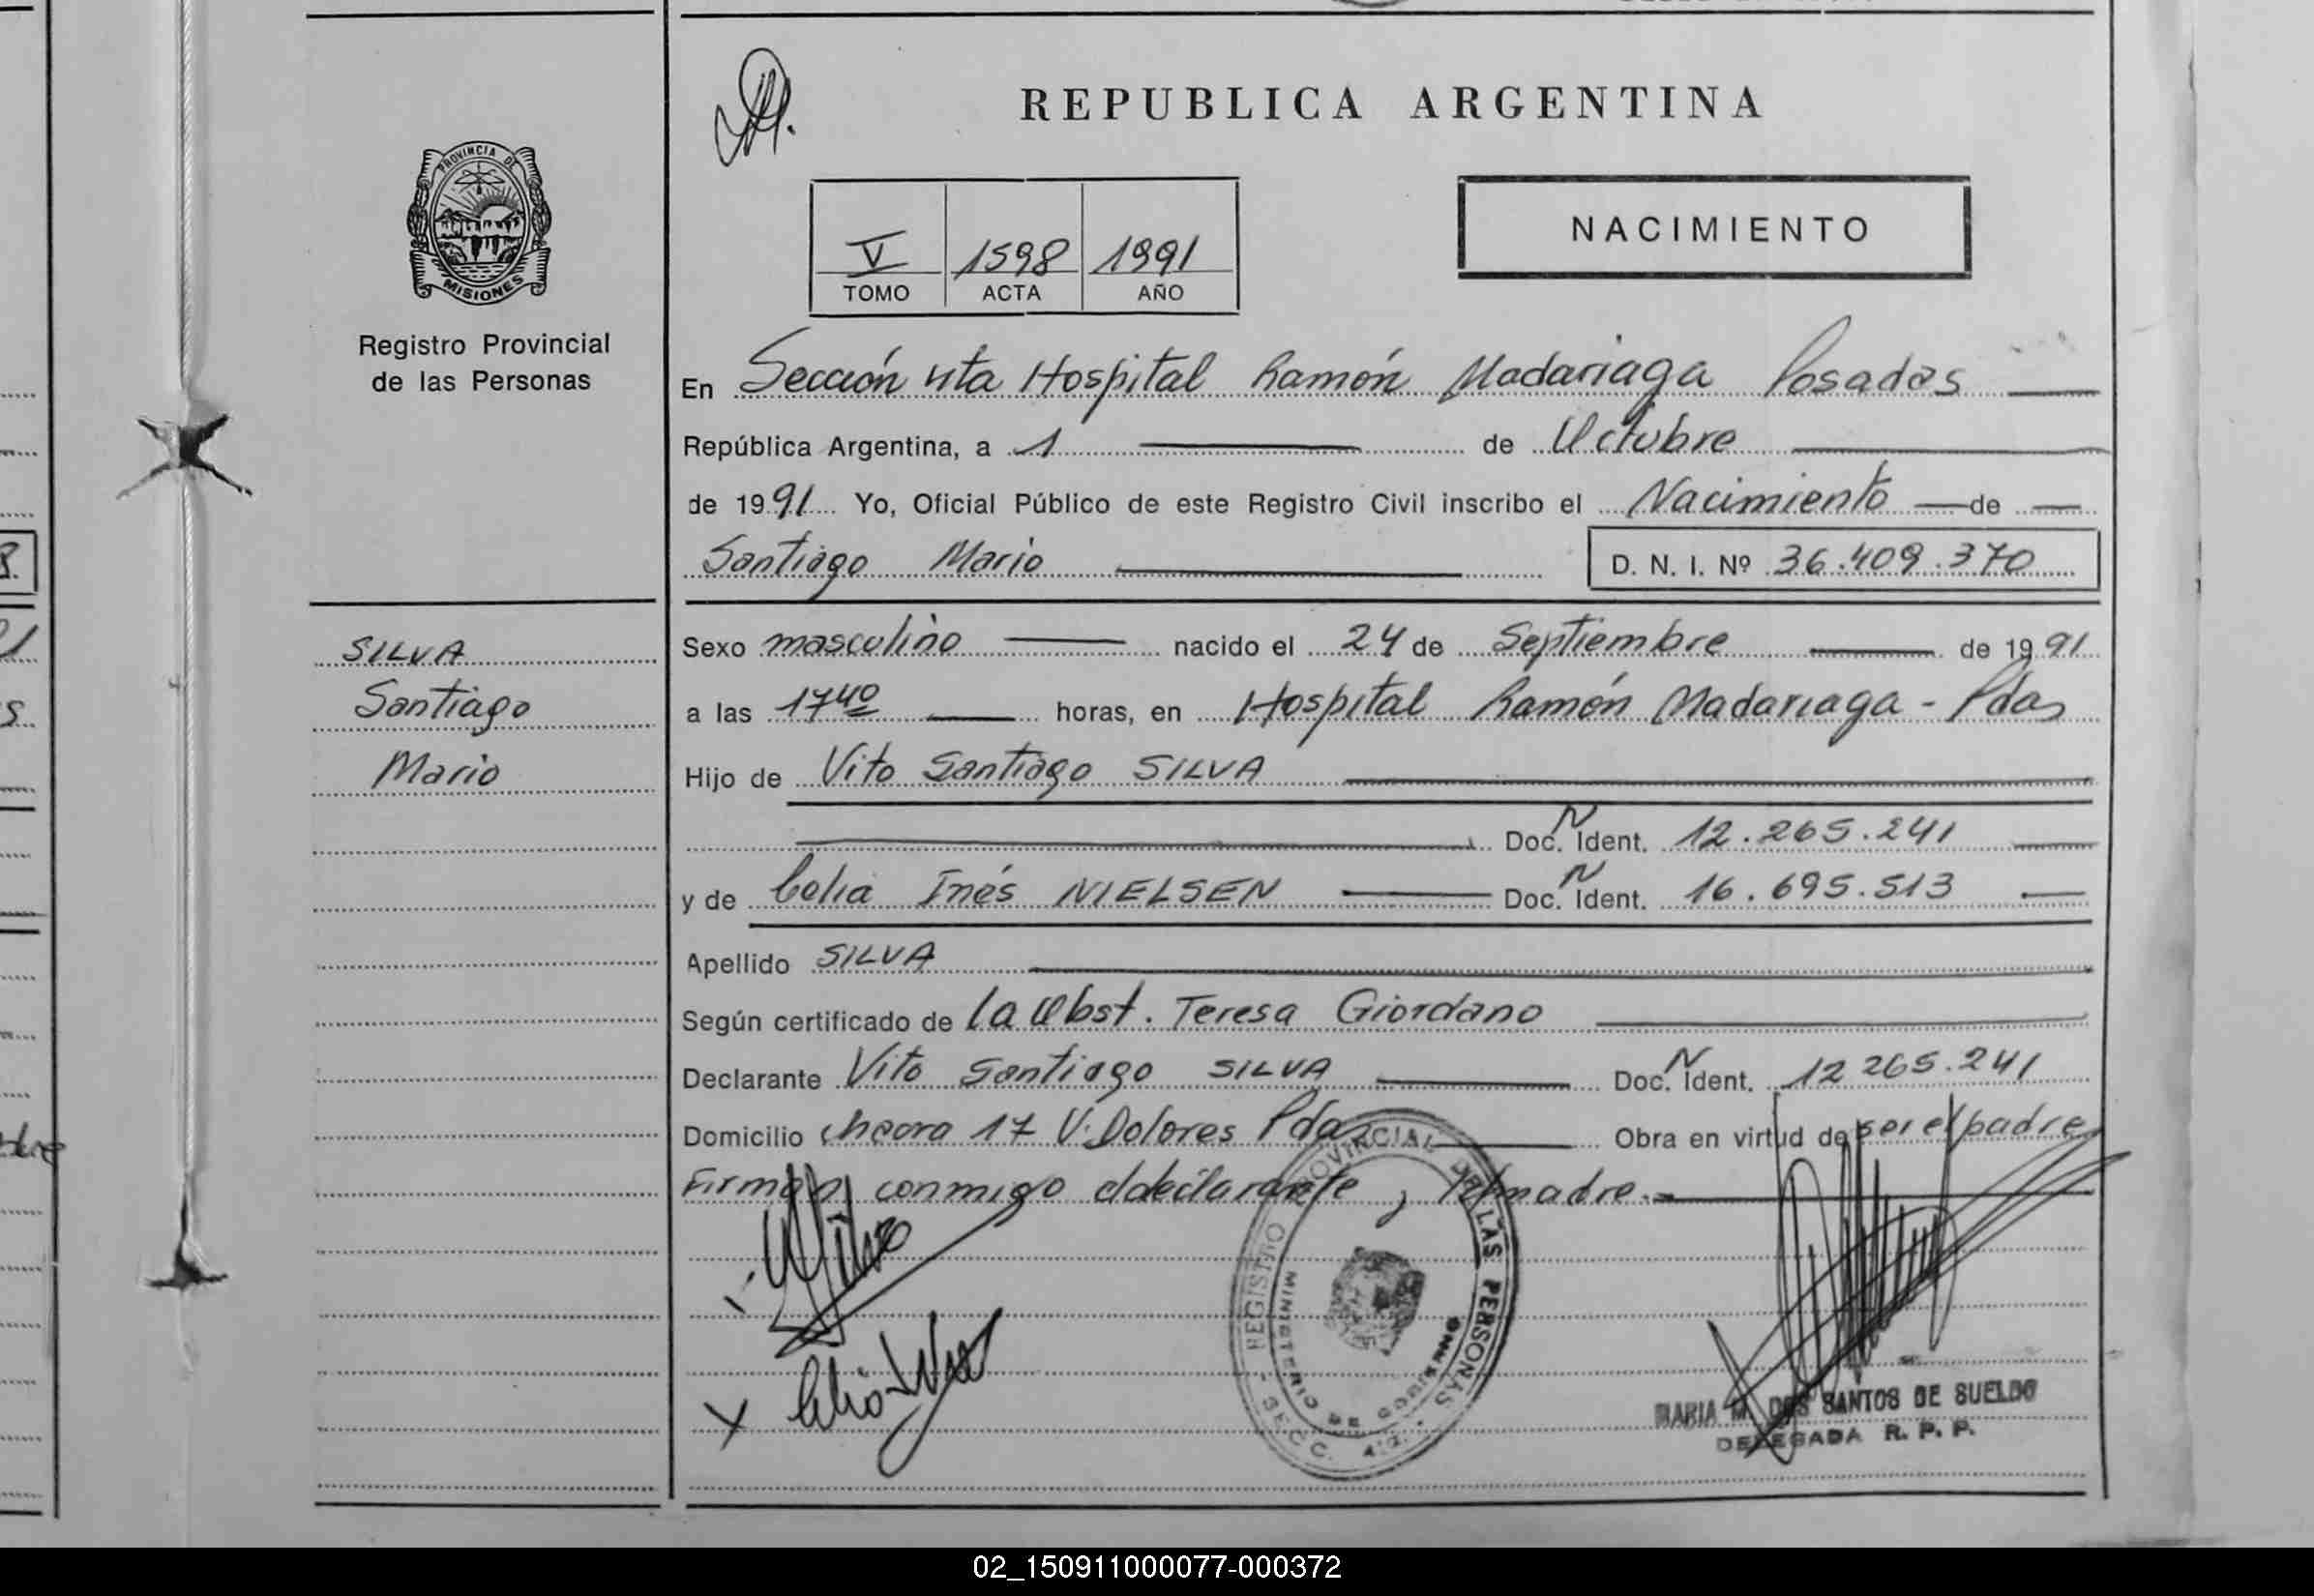 REPUBLICA ARGENTINA
PROVINCIA DE
MISIONES
Registro Provincial
de las Personas
V 1598 1991
TOMO ACTA AÑO
NACIMIENTO
En Sección 4ta Hospital Ramón Madariaga Posadas
República Argentina, a 1 de Octubre
de 1991 Yo, Oficial Público de este Registro Civil inscribo el Nacimiento de
Santiago Mario D. N. I. Nº 36.409.370
SILVA
Santiago
Mario
Sexo masculino nacido el 24 de Septiembre de 1991
a las 17 40 horas, en Hospital Ramón Madariaga - Pdas
Hijo de Vito Santiago SILVA
Doc. N Ident. 12.265.241
y de Celia Inés NIELSEN Doc. N Ident. 16.695.513
Apellido SILVA
Según certificado de la Obst. Teresa Giordano
Declarante Vito Santiago SILVA Doc. N Ident. 12 265.241
Domicilio chacra 17 V. Dolores Pdas Obra en virtud de ser el padre
Firman conmigo el declarante y la madre.
REGISTRO PROVINCIAL DE LAS PERSONAS
MINISTERIO DE GOBIERNO
SECC. 4ta.
MARIA M. DOS SANTOS DE SUELDO
DELEGADA R. P. P.
02_150911000077-000372